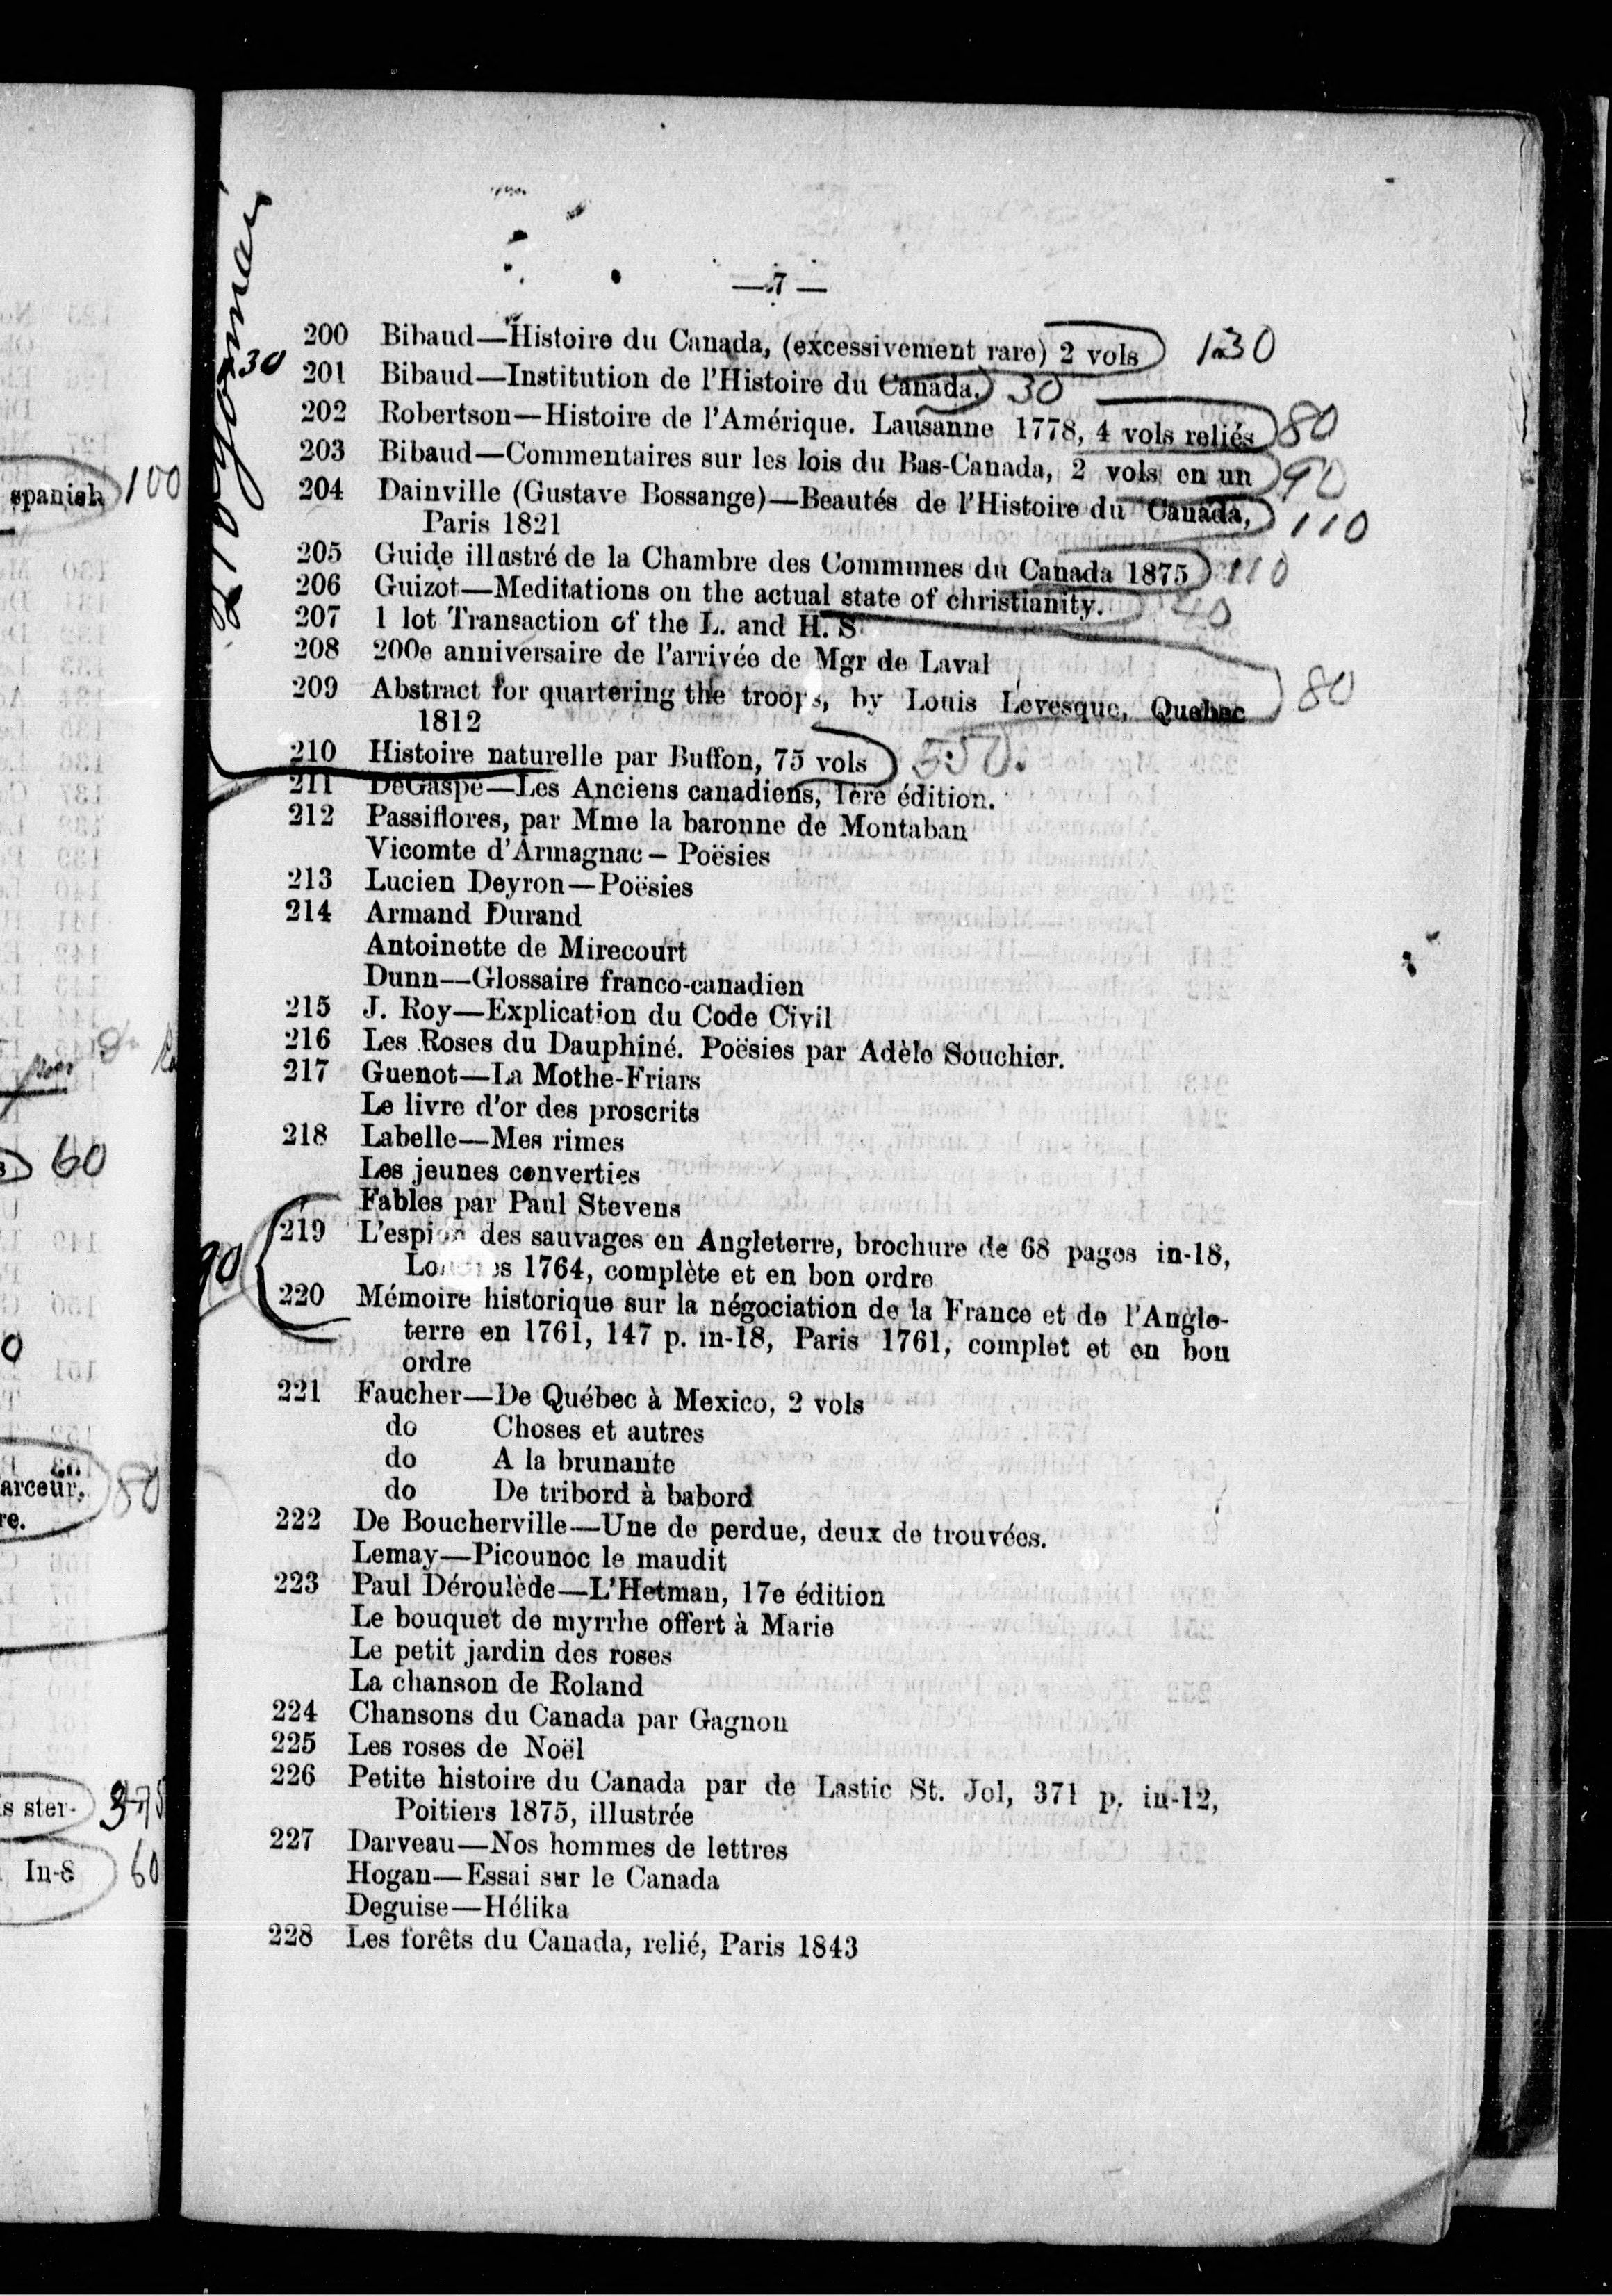 spanish 100
60
0
arceur, 80
re.
s ster- 375
In-8 60
— 7 —
30
200 Bibaud—Histoire du Canada, (excessivement rare) 2 vols 130
201 Bibaud—Institution de l'Histoire du Canada. 30
202 Robertson—Histoire de l'Amérique. Lausanne 1778, 4 vols reliés 80
203 Bibaud—Commentaires sur les lois du Bas-Canada, 2 vols en un 90
204 Dainville (Gustave Bossange)—Beautés de l'Histoire du Canada, 110
Paris 1821
205 Guide illustré de la Chambre des Communes du Canada 1875 110
206 Guizot—Meditations on the actual state of christianity. 40
207 1 lot Transaction of the L. and H. S
208 200e anniversaire de l'arrivée de Mgr de Laval
209 Abstract for quartering the troops, by Louis Levesque, Quebec 80
1812
210 Histoire naturelle par Buffon, 75 vols 550.
211 DeGaspé—Les Anciens canadiens, 1ère édition.
212 Passiflores, par Mme la baronne de Montaban
Vicomte d'Armagnac – Poësies
213 Lucien Deyron—Poësies
214 Armand Durand
Antoinette de Mirecourt
Dunn—Glossaire franco-canadien
215 J. Roy—Explication du Code Civil
216 Les Roses du Dauphiné. Poësies par Adèle Souchier.
217 Guenot—La Mothe-Friars
Le livre d'or des proscrits
218 Labelle—Mes rimes
Les jeunes converties
Fables par Paul Stevens
219 L'espion des sauvages en Angleterre, brochure de 68 pages in-18,
Londres 1764, complète et en bon ordre
90
220 Mémoire historique sur la négociation de la France et de l'Angle-
terre en 1761, 147 p. in-18, Paris 1761, complet et en bon
ordre
221 Faucher—De Québec à Mexico, 2 vols
do Choses et autres
do A la brunante
do De tribord à babord
222 De Boucherville—Une de perdue, deux de trouvées.
Lemay—Picounoc le maudit
223 Paul Déroulède—L'Hetman, 17e édition
Le bouquet de myrrhe offert à Marie
Le petit jardin des roses
La chanson de Roland
224 Chansons du Canada par Gagnon
225 Les roses de Noël
226 Petite histoire du Canada par de Lastic St. Jol, 371 p. in-12,
Poitiers 1875, illustrée
227 Darveau—Nos hommes de lettres
Hogan—Essai sur le Canada
Deguise—Hélika
228 Les forêts du Canada, relié, Paris 1843